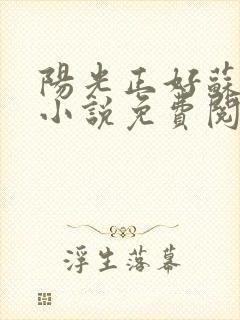 陽光正好蘇
小說免費閱
浮生落幕